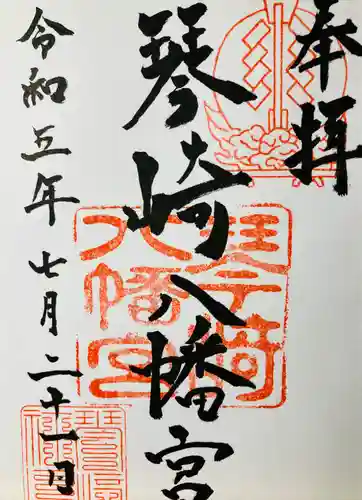 奉拝
琴崎八幡宮
令和五年七月二十一日
琴崎
八幡宮